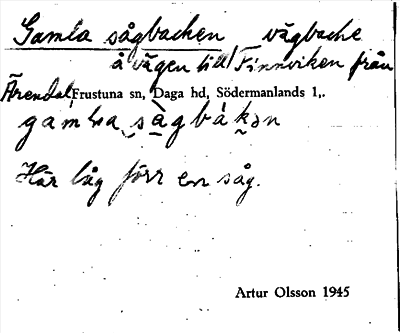 Gamla sågbacken vägbacke
å vägen till Finnviken från
Ärendal, Frustuna sn, Daga hd, Södermanlands l,.
gamla sågbàkən
Här låg förr en såg.
Artur Olsson 1945